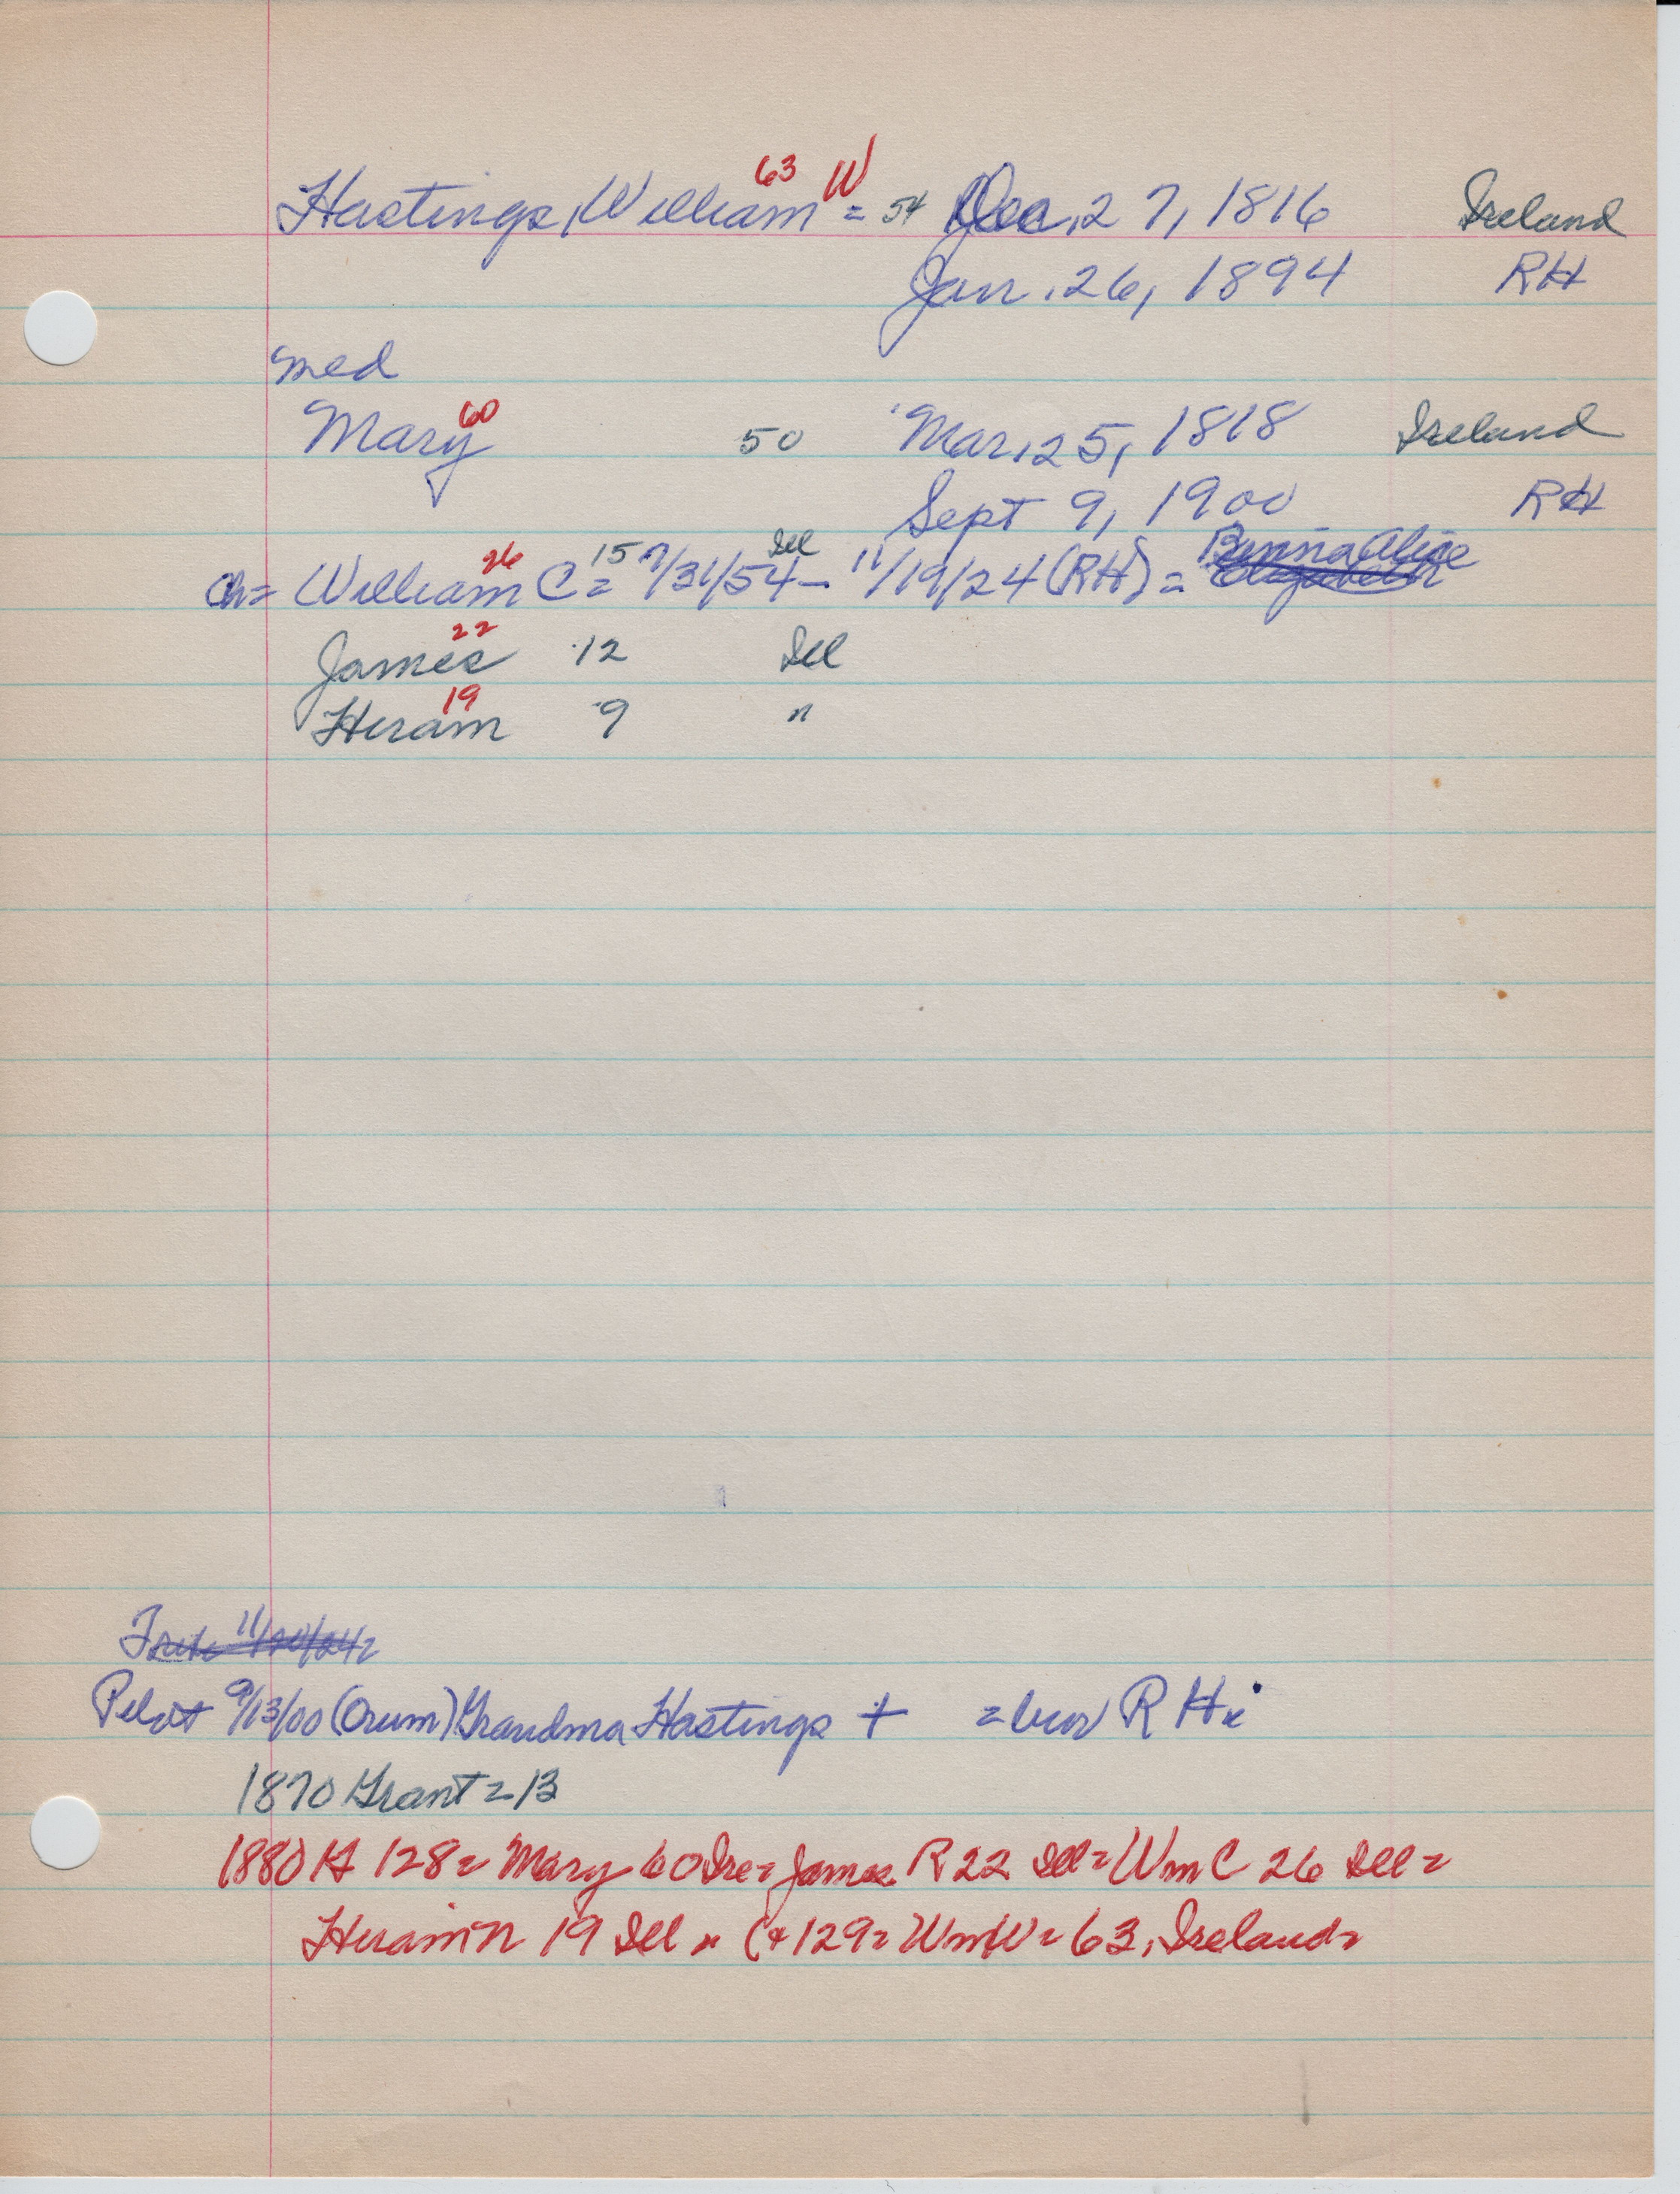 Hastings, William 63 W = 54 Dec. 27, 1816 Ireland
Jan. 26, 1894 RH
med
Mary 60 50 Mar. 25, 1818 Ireland
Sept 9, 1900 RH
ch = William 26 C = 15 7/31/54 Ill – 11/19/24 (RH) =
James 22 12 Ill
Hiram 19 9 "
11/20/24 =
Pilot 9/13/00 (Orum) Grandma Hastings + = bur RH.
1870 Grant = 13
1880 H 128 = Mary 60 Ire = James R 22 Ill = Wm C 26 Ill =
Hiram N 19 Ill = (+ 129 = Wm W = 63, Ireland =